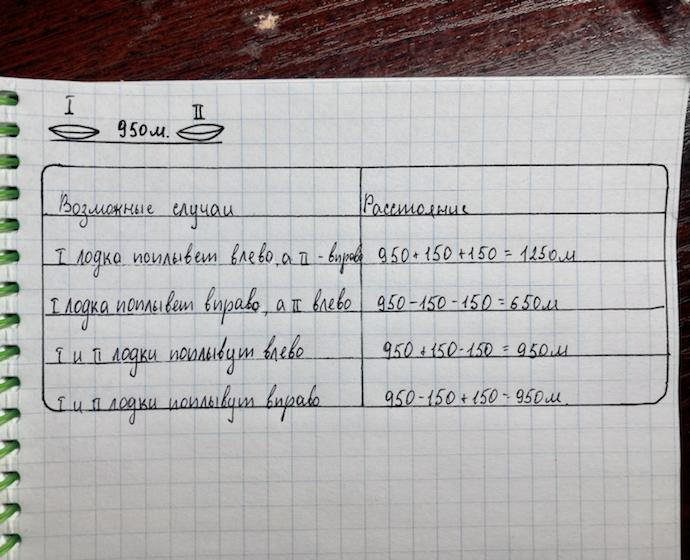 I II
950м.
Возможные случаи Расстояние
I лодка поплывет влево, а II - вправо 950 + 150 + 150 = 1250м
I лодка поплывет вправо, а II влево 950 - 150 - 150 = 650м
I и II лодки поплывут влево 950 + 150 - 150 = 950м
I и II лодки поплывут вправо 950 - 150 + 150 = 950м.